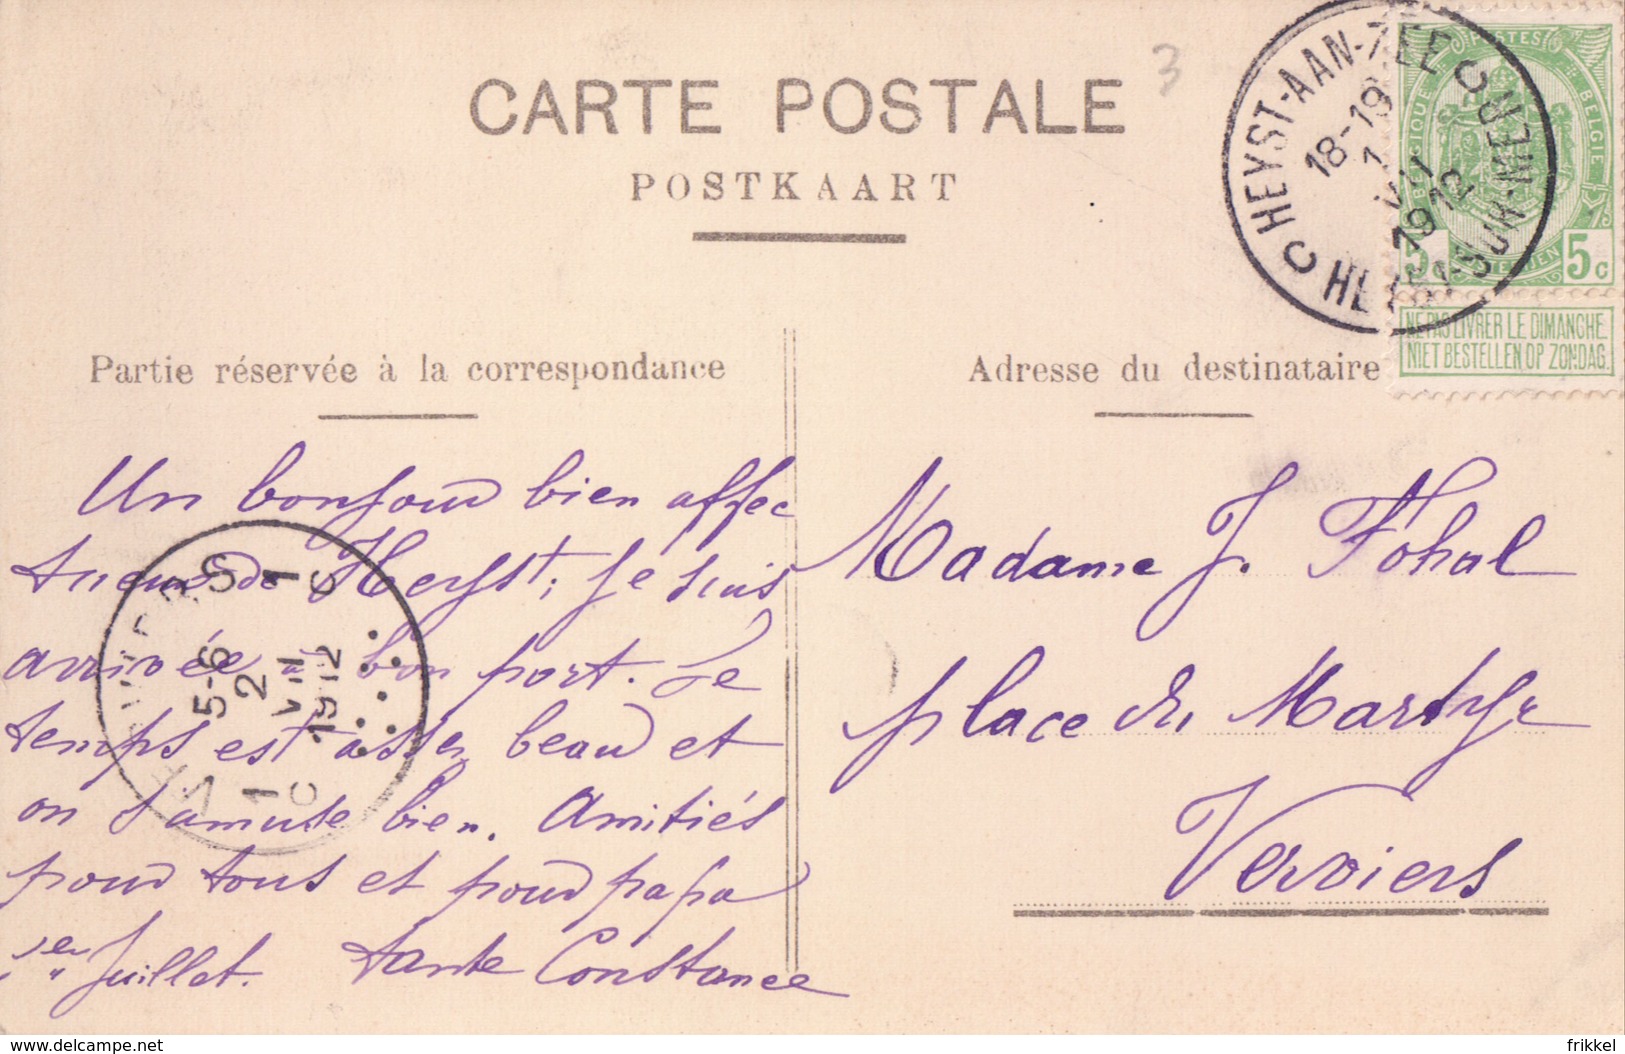 CARTE POSTALE
3
POSTKAART
HEYST-AAN-ZEE
18-19
1
VII
1912
HEYST-SUR-MER
POSTES
BELGIQUE
BELGIË
5c
5c
NE PAS LIVRER LE DIMANCHE
NIET BESTELLEN OP ZONDAG.
Partie réservée à la correspondance
Adresse du destinataire
Un bonjour bien affec
tueux de Heyst; je suis
arrivée à bon port. Le
temps est assez beau et
on s'amuse bien. Amitiés
pour tous et pour papa
1er Juillet. tante Constance
VERVIERS
5-6
2
VII
1912
1
C
1
C
Madame J. Fohal
place du Martyr
Verviers
www.delcampe.net
frikkel